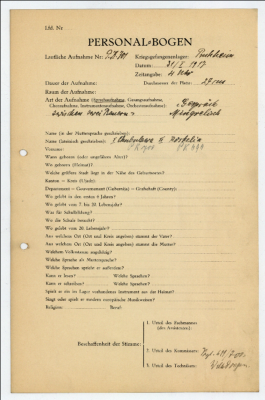 Lfd. Nr.
PERSONAL-BOGEN
Lautliche Aufnahme Nr.: Kriegsgefangenenlager: Puchheim
Datum: 1917
Zeitangabe: 4 Uhr
Dauer der Aufnahme: Durchmesser der Platte: 27 cm
Raum der Aufnahme:
Art der Aufnahme (Sprechaufnahme, Gesangsaufnahme, Gespräch
Choraufnahme, Instrumentenaufnahme, Orchesteraufnahme): Mingrelisch
zwischen zwei Personen
Name (in der Muttersprache geschrieben):
Name (lateinisch geschrieben):
Vorname:
Wann geboren (oder ungefähres Alter)?
Wo geboren (Heimat)?
Welche größere Stadt liegt in der Nähe des Geburtsortes?
Kanton — Kreis (Ujedz):
Departement — Gouvernement (Gubernija) — Grafschaft (County):
Wo gelebt in den ersten 6 Jahren?
Wo gelebt vom 7. bis 20. Lebensjahr?
Was für Schulbildung?
Wo die Schule besucht?
Wo gelebt vom 20. Lebensjahr?
Aus welchem Ort (Ort und Kreis angeben) stammt der Vater?
Aus welchem Ort (Ort und Kreis angeben) stammt die Mutter?
Welchem Volksstamm angehörig?
Welche Sprache als Muttersprache?
Welche Sprachen spricht er außerdem?
Kann er lesen? Welche Sprachen?
Kann er schreiben? Welche Sprachen?
Spielt er ein im Lager vorhandenes Instrument aus der Heimat?
Singt oder spielt er modern europäische Musikweisen?
Religion: Beruf:
Beschaffenheit der Stimme:
1. Urteil des Fachmannes:
(des Assistenten)
2. Urteil des Kommissars:
3. Urteil des Technikers: